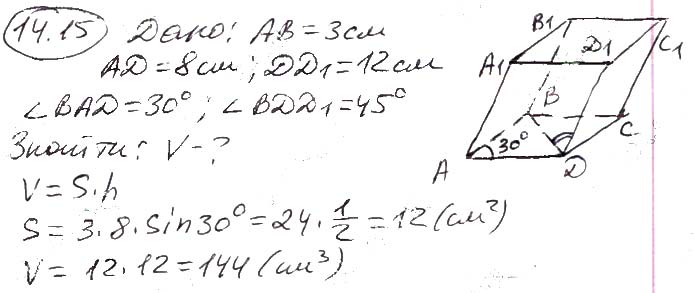 14.15 Дано: AB = 3см
AD = 8см; DD1 = 12см
∠BAD = 30°; ∠BDD1 = 45°
Знайти: V - ?
V = S·h
S = 3·8·sin30° = 24·1/2 = 12 (см²)
V = 12·12 = 144 (см³)
B1
C1
A1
D1
B
C
30°
A
D